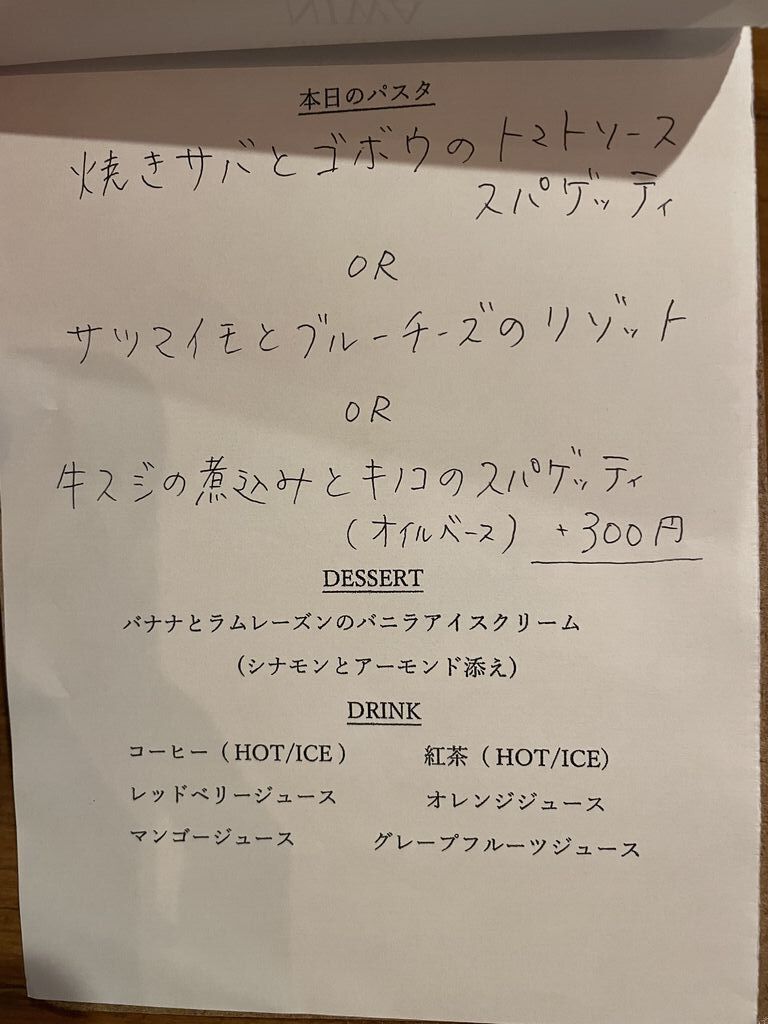 本日のパスタ
焼きサバとゴボウのトマトソース
スパゲッティ
OR
サツマイモとブルーチーズのリゾット
OR
牛スジの煮込みとキノコのスパゲッティ
(オイルベース) +300円
DESSERT
バナナとラムレーズンのバニラアイスクリーム
(シナモンとアーモンド添え)
DRINK
コーヒー ( HOT/ICE ) 紅茶 ( HOT/ICE)
レッドベリージュース オレンジジュース
マンゴージュース グレープフルーツジュース